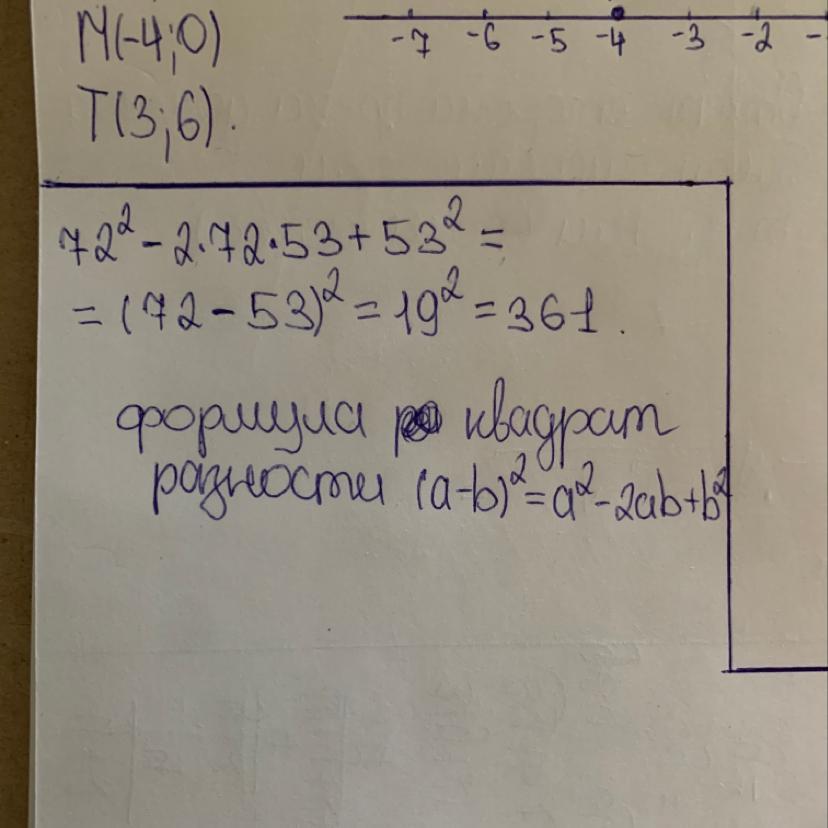 М(-4;0)
-7 -6 -5 -4 -3 -2
Т(3;6).
72² - 2·72·53 + 53² =
= (72 - 53)² = 19² = 361.
формула квадрат
разности (a-b)² = a² - 2ab + b²